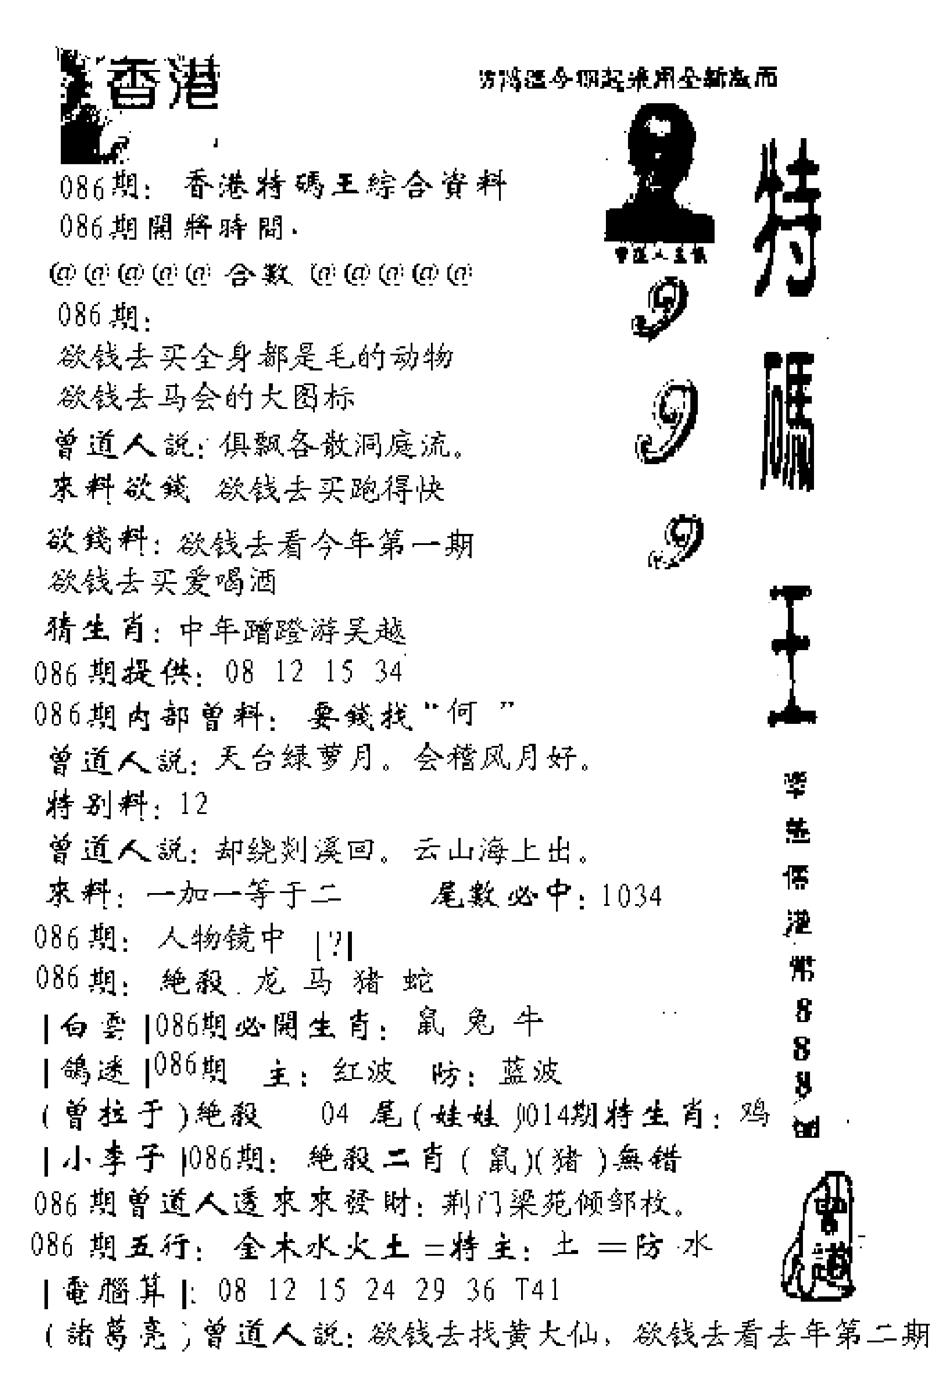 香港
086期：香港特碼王綜合資料
086期開將時間.
@@@@@合數@@@@@
086期：
欲钱去买全身都是毛的动物
欲钱去马会的大图标
曾道人説：俱飘各散洞庭流。
來料欲錢 欲钱去买跑得快
欲錢料：欲钱去看今年第一期
欲钱去买爱喝酒
猜生肖：中年蹭蹬游吴越
086期提供：08 12 15 34
086期内部曾料：要錢找“何 ”
曾道人説：天台緑萝月。会稽风月好。
特别料：12
曾道人説：却绕剡溪回。云山海上出。
來料：一加一等于二 尾數必中：1034
086期：人物镜中 [?]
086期：絶殺.龙 马 猪 蛇
|白雲|086期必開生肖：鼠 兔 牛
|鴿迷|086期 主：红波 防：蓝波
(曾拉于)絶殺 04 尾(娃娃)014期特生肖：鸡
|小李子|086期：絶殺二肖(鼠)(猪)無错
086期曾道人透來來發財：荆门梁苑倾邹枚。
086期五行：金木水火土=特主：土=防水
|電腦算|：08 12 15 24 29 36 T41
(諸葛亮)曾道人説：欲钱去找黄大仙，欲钱去看去年第二期
曾道人主
9
9
9
特
碼
王
港
幣
8
8
8
曾道